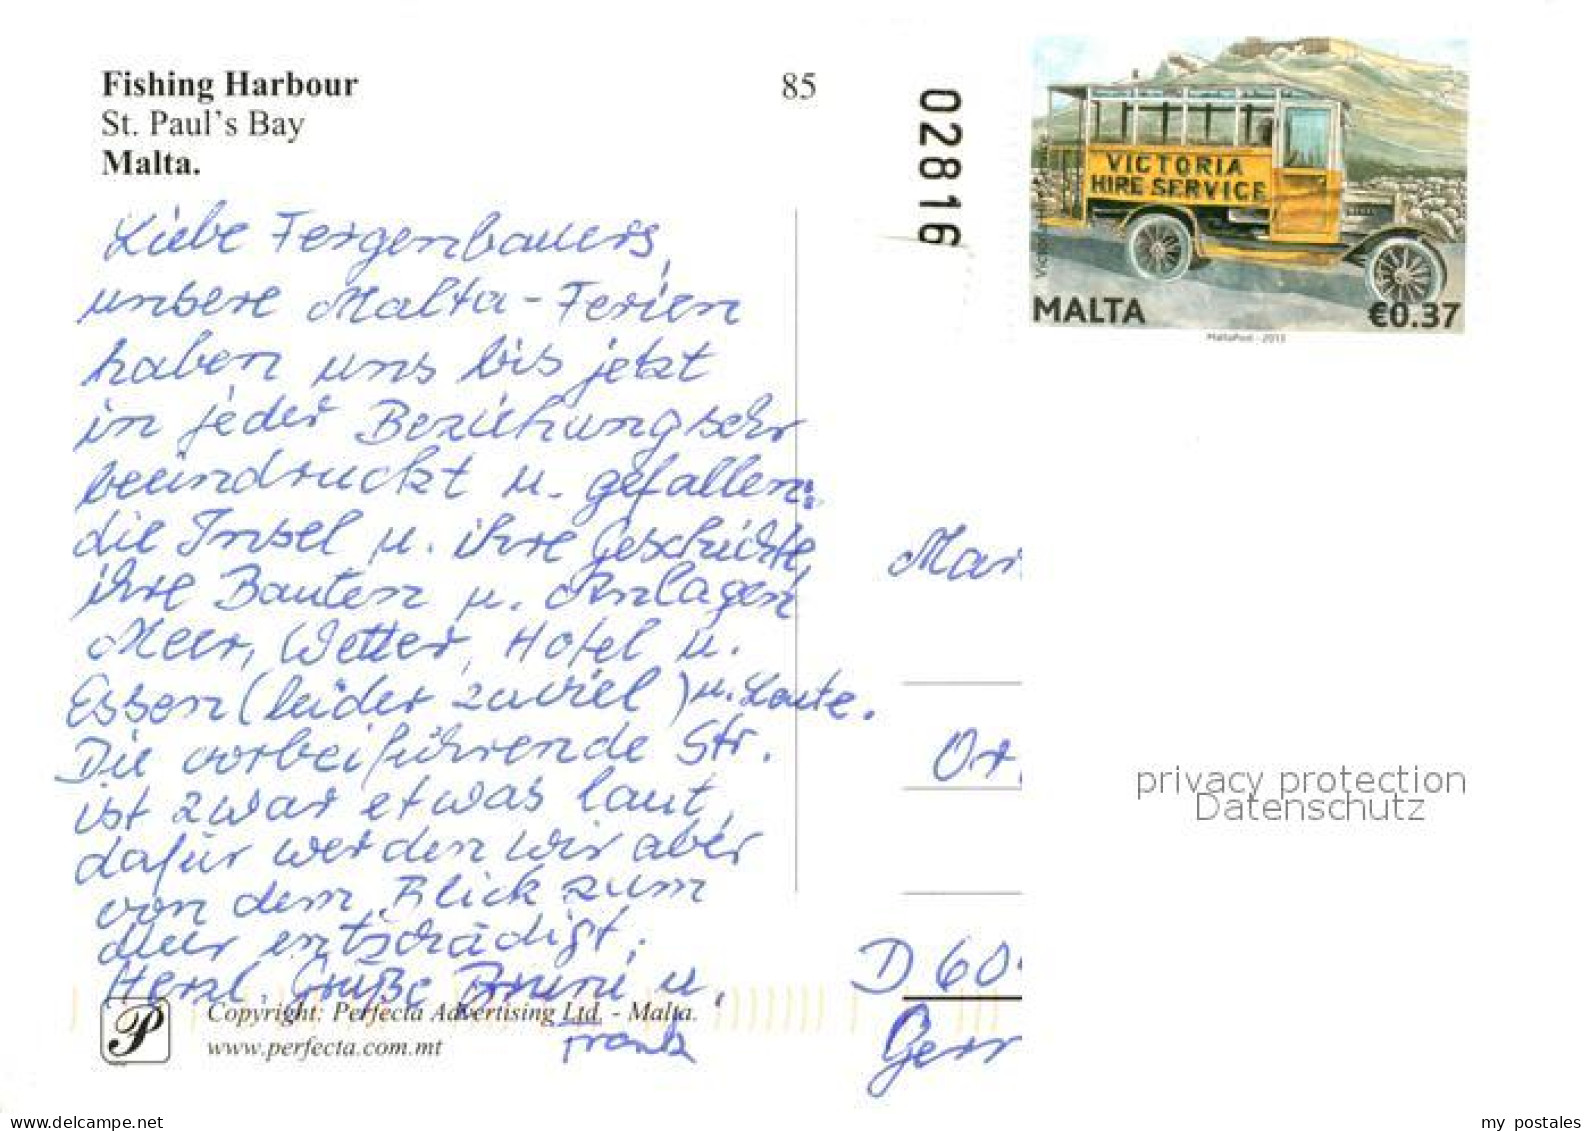 Fishing Harbour
St. Paul's Bay
Malta.
85
02816
VICTORIA
HIRE SERVICE
MALTA
€0.37
MaltaPost - 2013
Liebe Fergenbauers,
unsere Malta-Ferien
haben uns bis jetzt
in jeder Beziehung sehr
beeindruckt u. gefallen:
die Insel u. ihre Geschichte,
ihre Bauten u. Anlagen
Meer, Wetter, Hotel u.
Essen (leider zuviel) u. Leute.
Die vorbeiführende Str.
ist zwar etwas laut,
dafür werden wir aber
von dem Blick zum
Meer entschädigt.
Herzl. Grüße Bruni u.
Frank
Mar
Ort
D 60
Ger
privacy protection
Datenschutz
P
Copyright: Perfecta Advertising Ltd. - Malta.
www.perfecta.com.mt
my postales